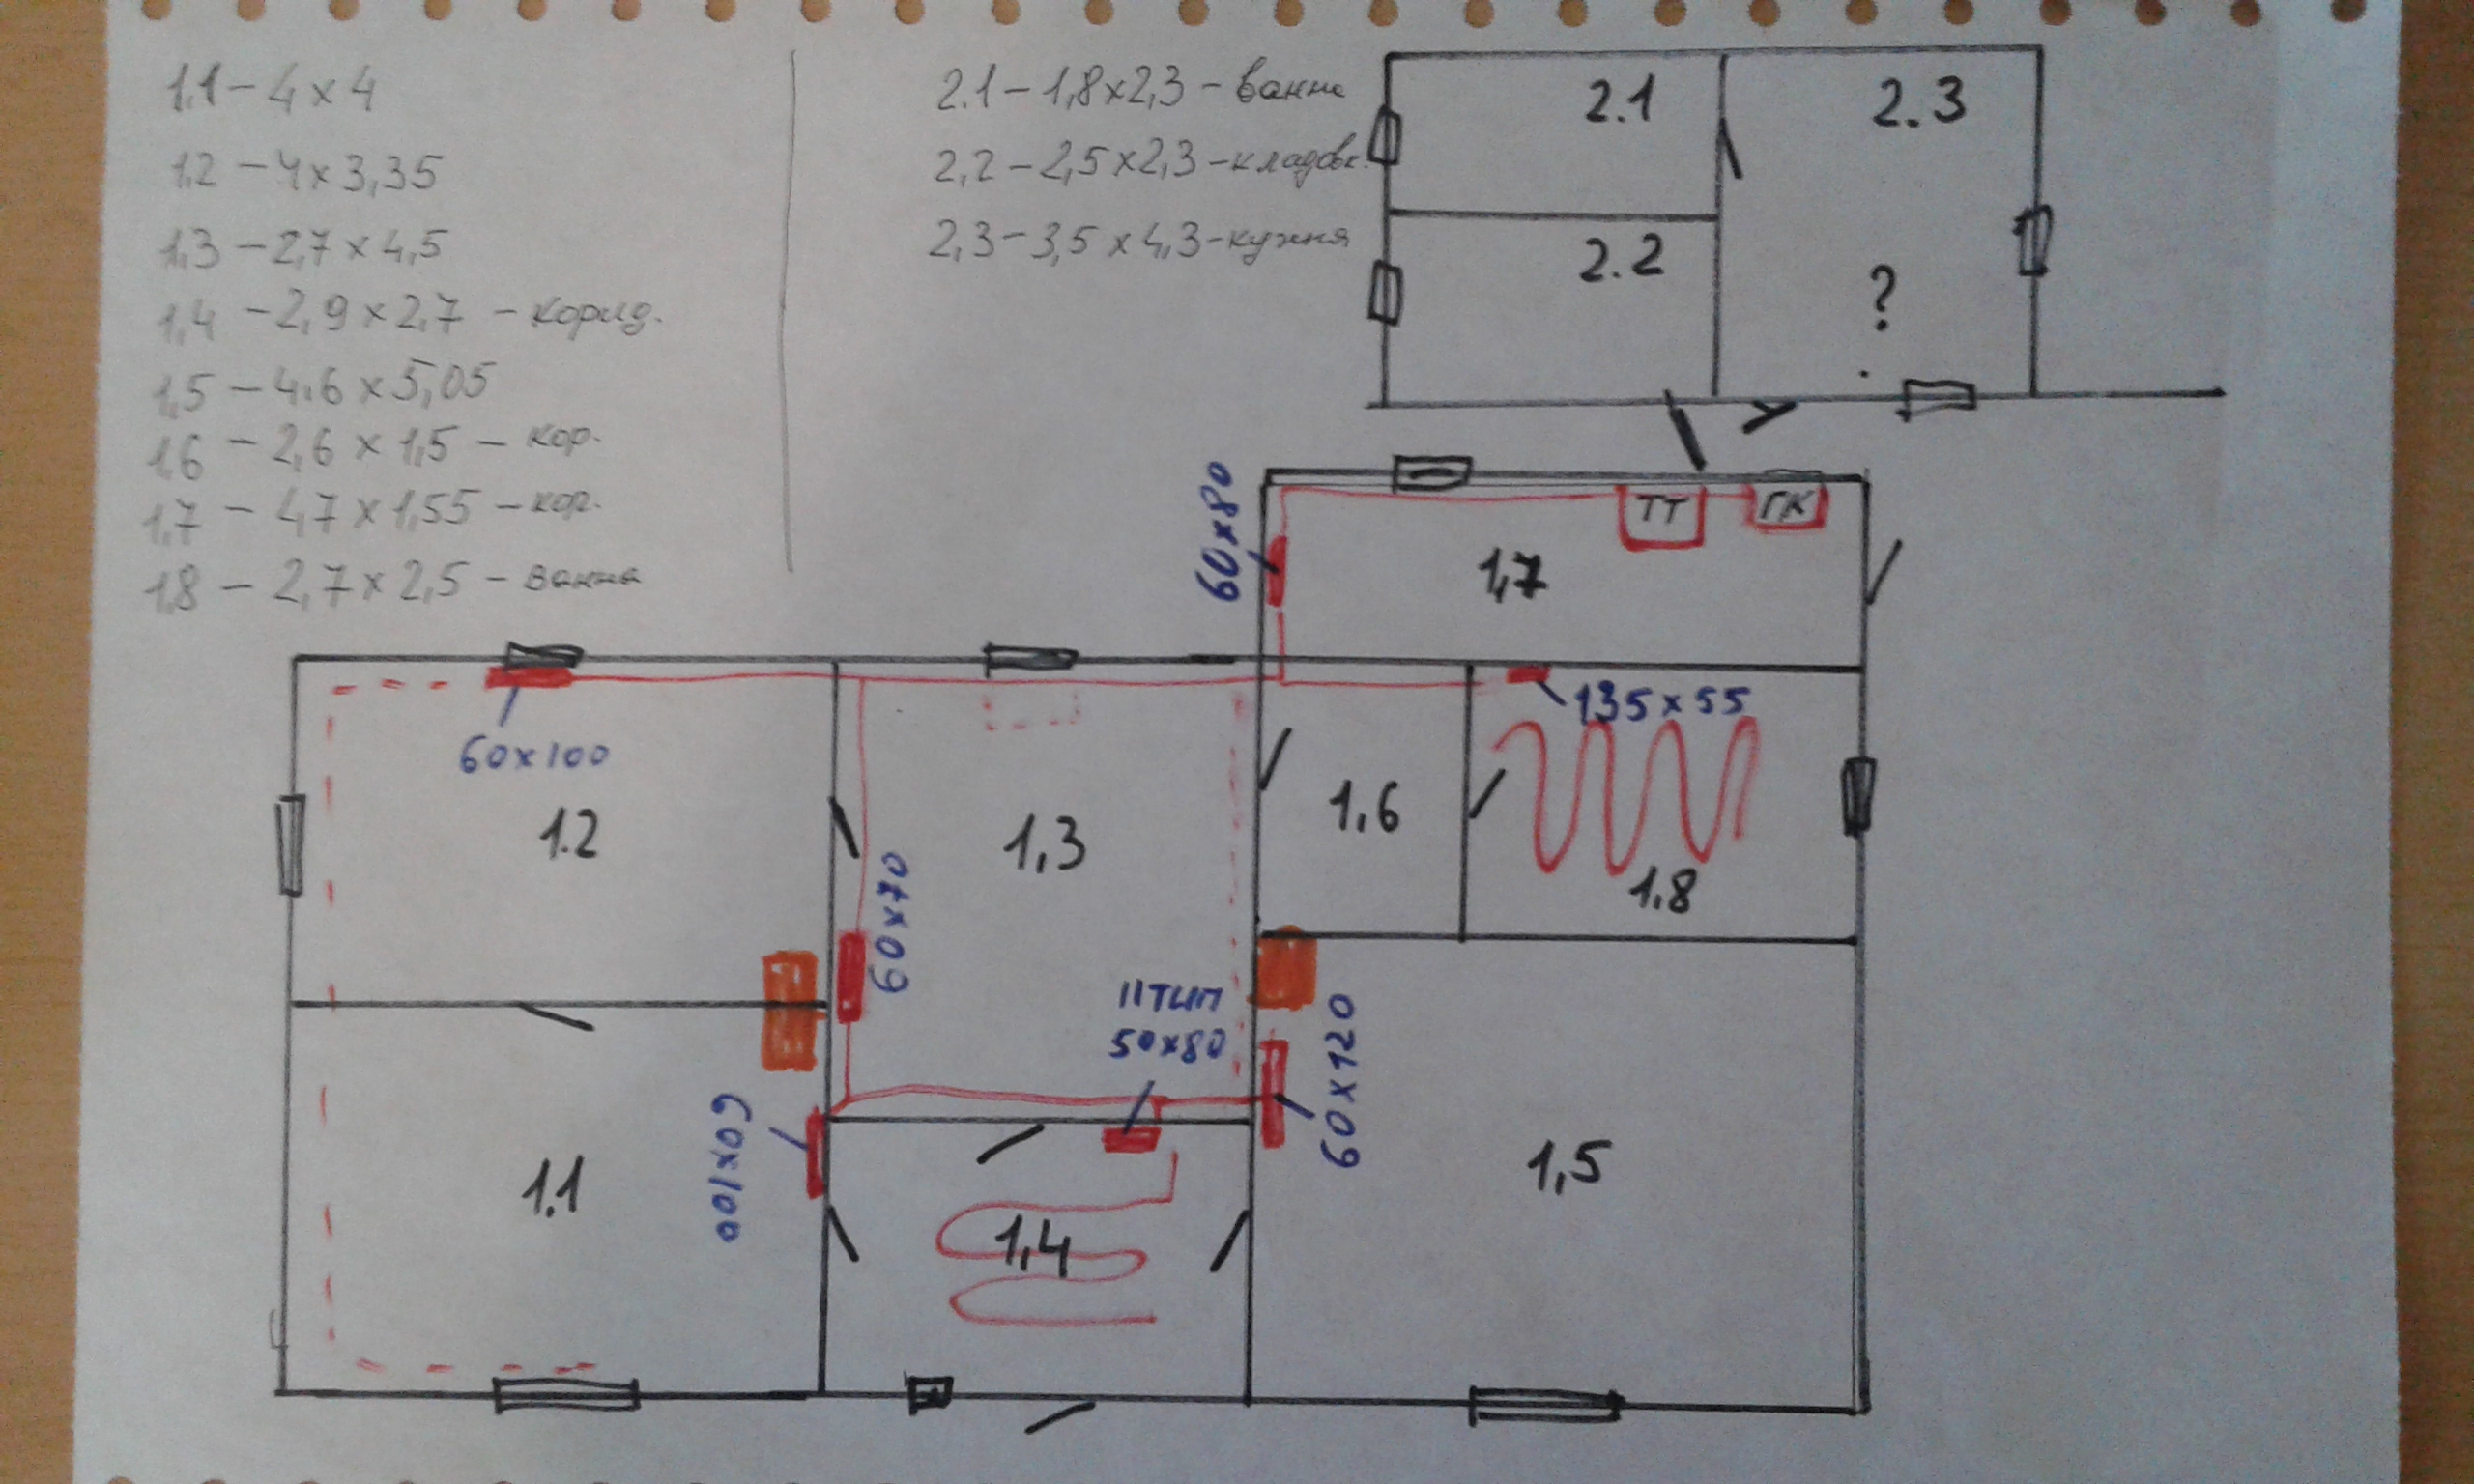 1.1 – 4 x 4
1.2 – 4 x 3,35
1,3 – 2,7 x 4,5
1,4 – 2,9 x 2,7 – корид.
1,5 – 4.6 x 5,05
1.6 – 2,6 x 1,5 – кор.
1,7 – 4,7 x 1,55 – кор.
1.8 – 2,7 x 2,5 – ванна
2.1 – 1,8 x 2,3 – ванна
2,2 – 2,5 x 2,3 – кладовк.
2,3 – 3,5 x 4,3 – кухня
2.1
2.3
2.2
?
60x80
ТТ
ГК
1,7
135x55
60x100
1.2
1,3
1.6
1.8
60x70
II тип
50x80
60x120
60x100
1.1
1,4
1,5